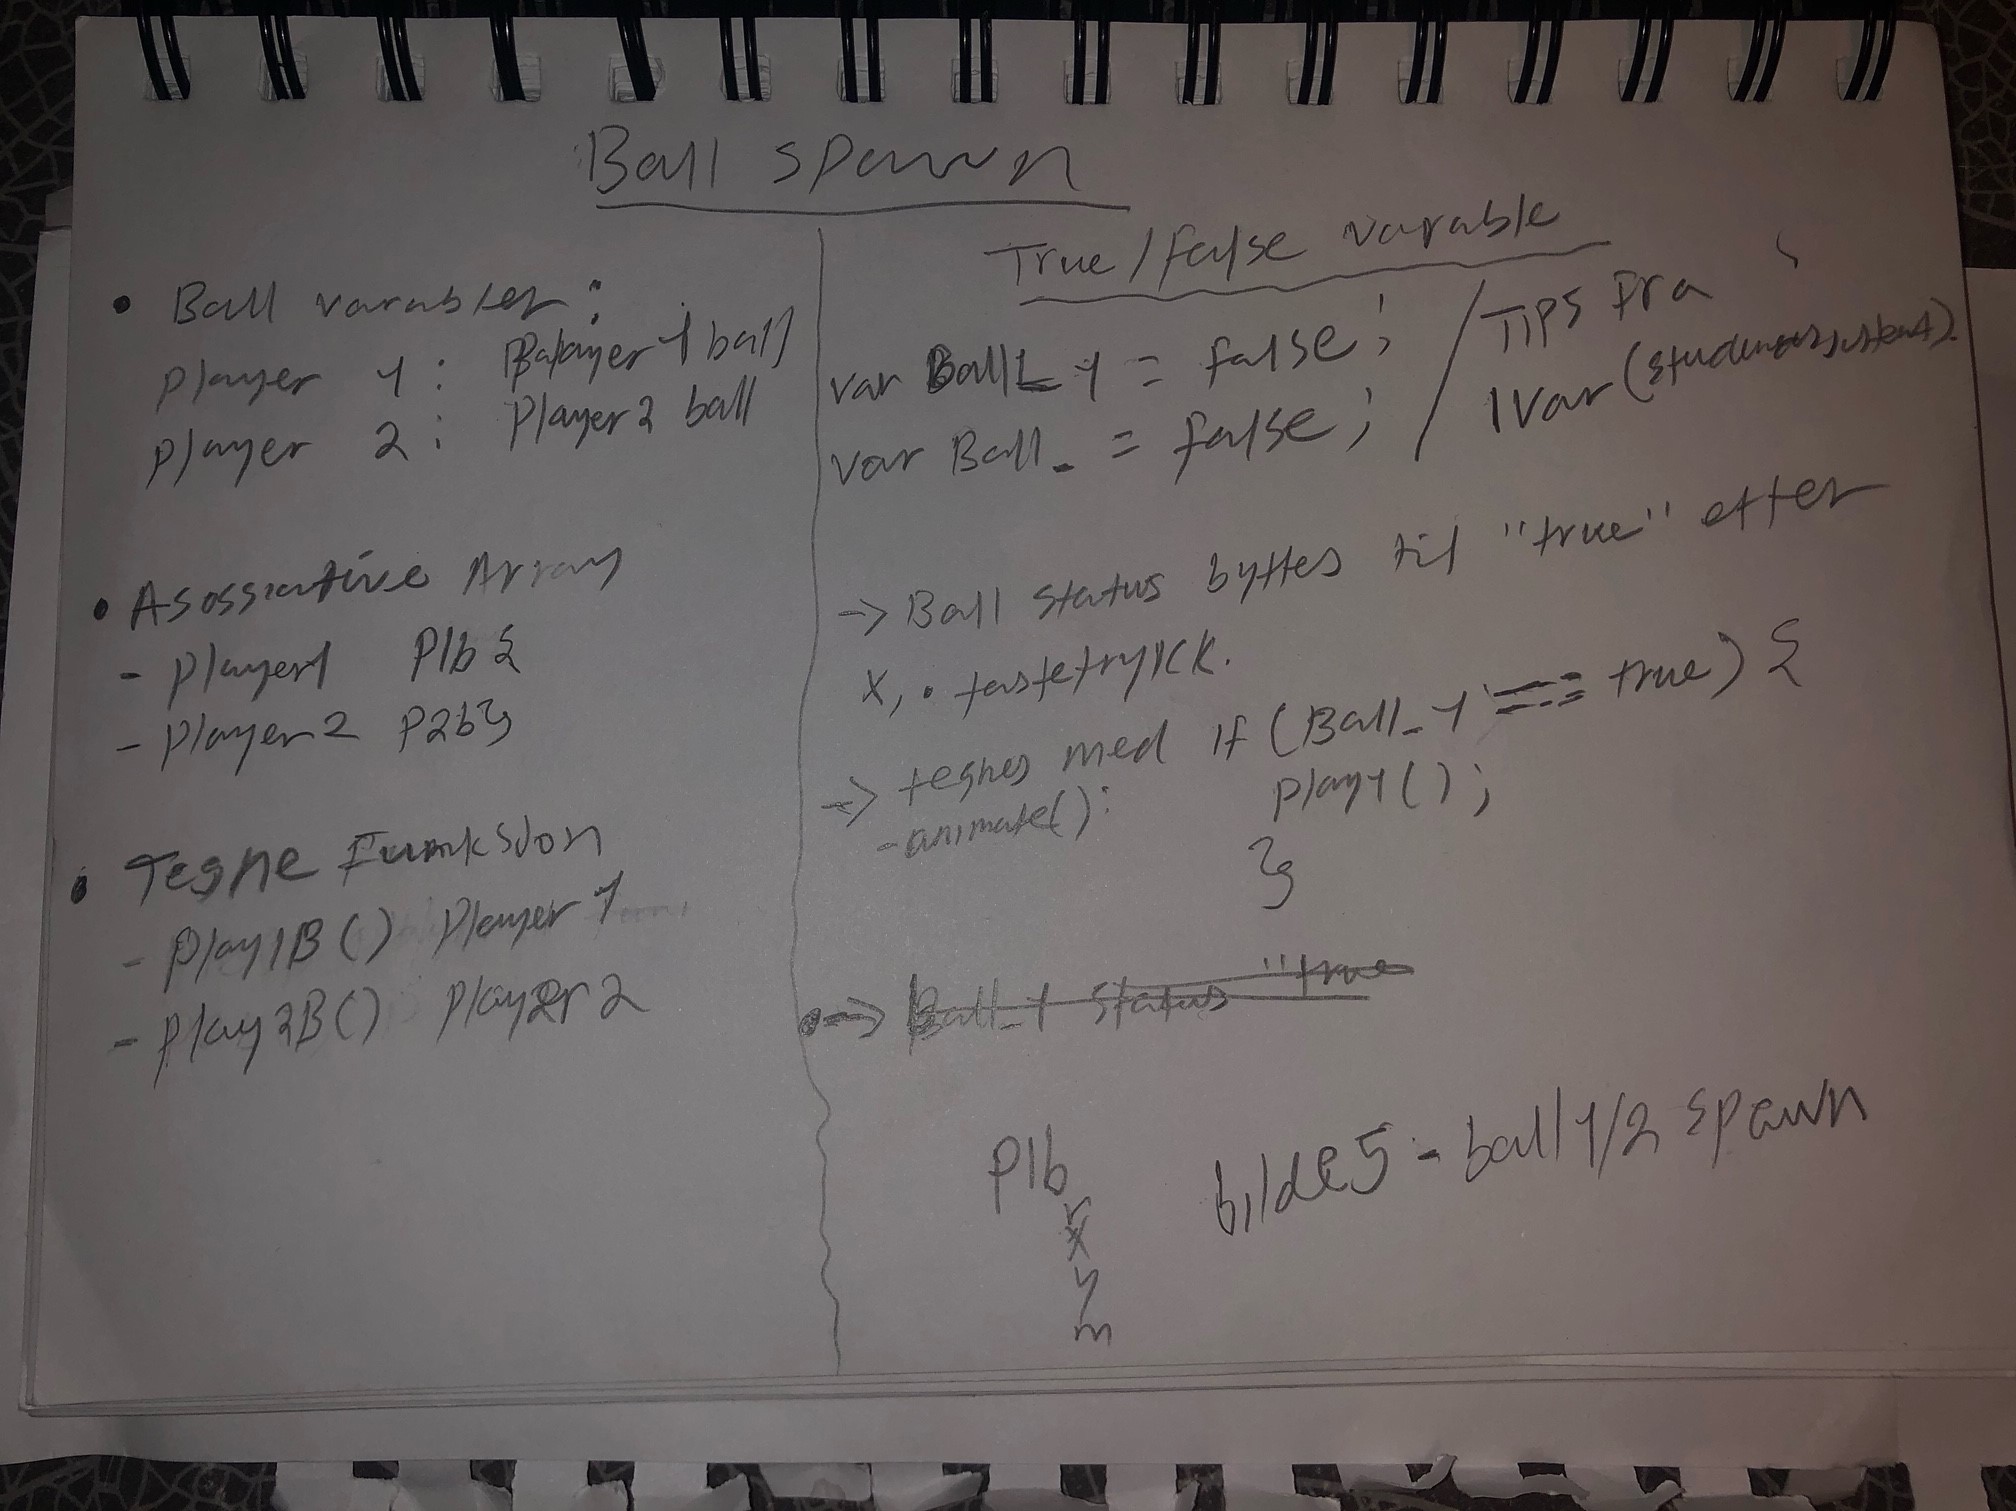 Ball spawn
• Ball varabler:
player 1: Player 1 ball
player 2: Player 2 ball
• Asossiative Array
- Player1 P1b {
- Player2 P2b}
• Tegne Funksjon
- Play1B() Player 1
- Play2B() Player 2
True/false varable
var Ball_1 = false; / TIPS Fra
var Ball_ = false; / Ivar (studentassistent).
-> Ball status byttes til "true" etter
x, . tastetrykk.
-> tegnes med if (Ball_1 === true) {
- animate(): play1();
}
•-> Ball_1 status "true
P1b
r
x
y
m
bilde5 - ball 1/2 spawn